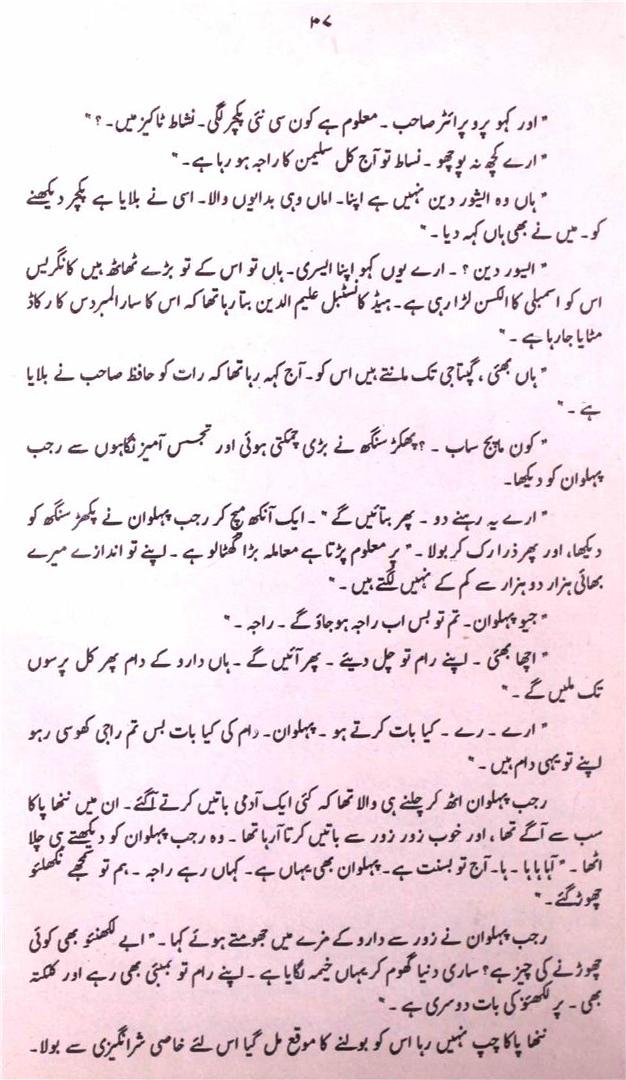 ۳۷
" اور کہو پروپرائٹر صاحب ۔ معلوم ہے کون سی نئی پکچر لگی۔ نشاط ٹاکیز میں۔ ؟ "
" ارے کچھ نہ پوچھو ۔ نساط تو آج کل سلیمن کا راجہ ہو رہا ہے۔ "
" ہاں وہ الیشور دین نہیں ہے اپنا۔ اماں وہی بدایوں والا۔ اسی نے بلایا ہے پکچر دیکھنے
کو۔ میں نے بھی ہاں کہہ دیا ۔ "
" الیور دین ؟ ۔ ارے یوں کہو اپنا ایسری۔ ہاں تو اس کے تو بڑے ٹھاٹھ ہیں کانگریس
اس کو اسمبلی کا الکسن لڑا رہی ہے۔ ہیڈ کانسٹبل علیم الدین بتا رہا تھا کہ اس کا سارا لمبردس کا رکاڈ
مٹایا جا رہا ہے ۔ "
" ہاں بھئی ، گپتا جی تک مانتے ہیں اس کو۔ آج کہہ رہا تھا کہ رات کو حافظ صاحب نے بلایا
ہے ۔ "
" کون ماپج ساب ۔ ؟ پھکڑ سنگھ نے بڑی چمکتی ہوئی اور تجسس آمیز نگاہوں سے رجب
پہلوان کو دیکھا۔
" ارے یہ رہنے دو ۔ پھر بتائیں گے " ۔ ایک آنکھ میچ کر رجب پہلوان نے پکھڑ سنگھ کو
دیکھا، اور پھر ذرا رک کر بولا ۔ " پر معلوم پڑتا ہے معاملہ بڑا گھٹالو ہے ۔ اپنے تو اندازے میرے
بھائی ہزار دو ہزار سے کم کے نہیں لگتے ہیں ۔ "
" جیو پہلوان ۔ تم تو بس اب راجہ ہو جاؤ گے ۔ راجہ ۔ "
" اچھا بھئی ۔ اپنے رام تو چل دیئے ۔ پھر آئیں گے ۔ ہاں دارو کے دام پھر کل پرسوں
تک ملیں گے ۔ "
" ارے ۔ رے ۔ کیا بات کرتے ہو ۔ پہلوان۔ دام کی کیا بات بس تم راجی کھوسی رہو
اپنے تو یہی دام ہیں ۔ "
رجب پہلوان اٹھ کر چلنے ہی والا تھا کہ کئی ایک آدمی باتیں کرتے آ گئے۔ ان میں ننھا پاکا
سب سے آگے تھا ، اور خوب زور زور سے باتیں کرتا آ رہا تھا ۔ وہ رجب پہلوان کو دیکھتے ہی چلا
اٹھا ۔ " آہاہاہا ۔ ہا۔ آج تو بسنت ہے۔ پہلوان بھی یہاں ہے۔ کہاں رہے راجہ ۔ ہم تو تجھے نکھلئو
چھوڑ گئے۔ "
رجب پہلوان نے زور سے دارو کے مزے میں جھومتے ہوئے کہا ۔ " ابے لکھنئو بھی کوئی
چھوڑنے کی چیز ہے؟ ساری دنیا گھوم کر یہاں خیمہ لگایا ہے ۔ اپنے رام تو بمبئی بھی رہے اور کلکتہ
بھی ۔ پر لکھنؤ کی بات دوسری ہے ۔ "
ننھا پاکا چپ نہیں رہا اس کو بولنے کا موقع مل گیا اس لئے خاصی شر انگیزی سے بولا۔